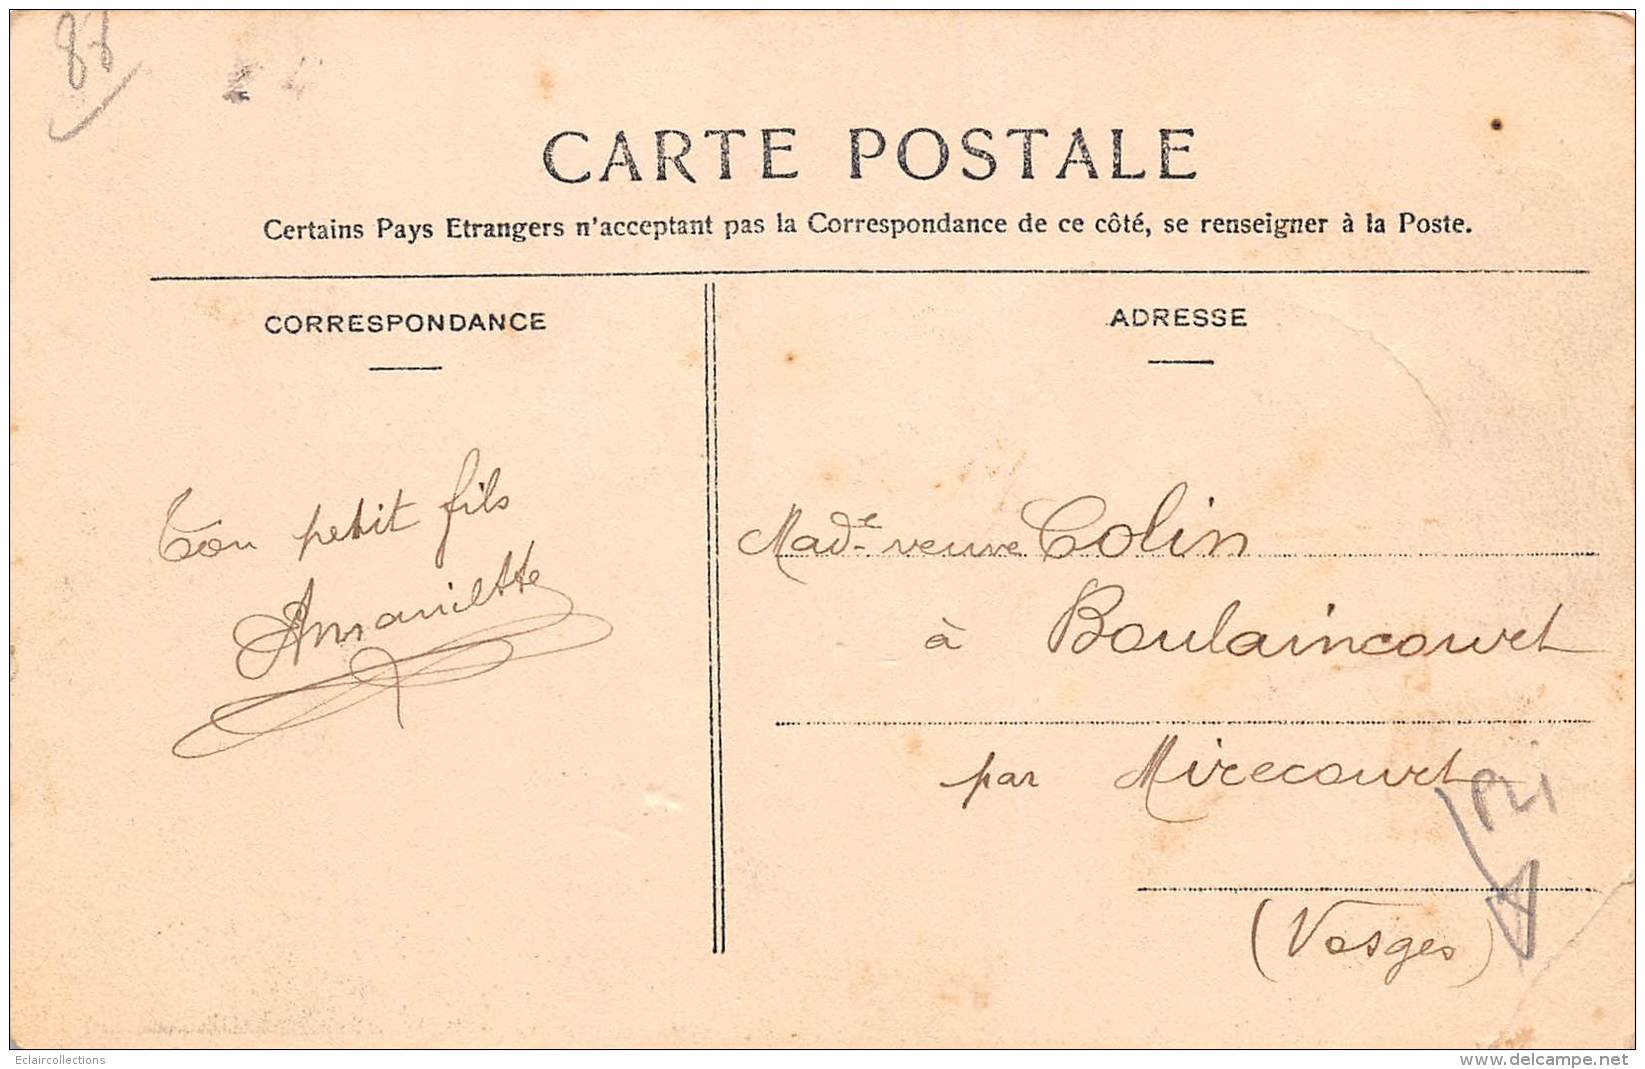 88
CARTE POSTALE
Certains Pays Etrangers n'acceptant pas la Correspondance de ce côté, se renseigner à la Poste.
CORRESPONDANCE
Ton petit fils
ADRESSE
Made veuve Colin
à Boulaincourt
par Mirecourt
PLi
(Vosges)
Eclaircollections
www.delcampe.net